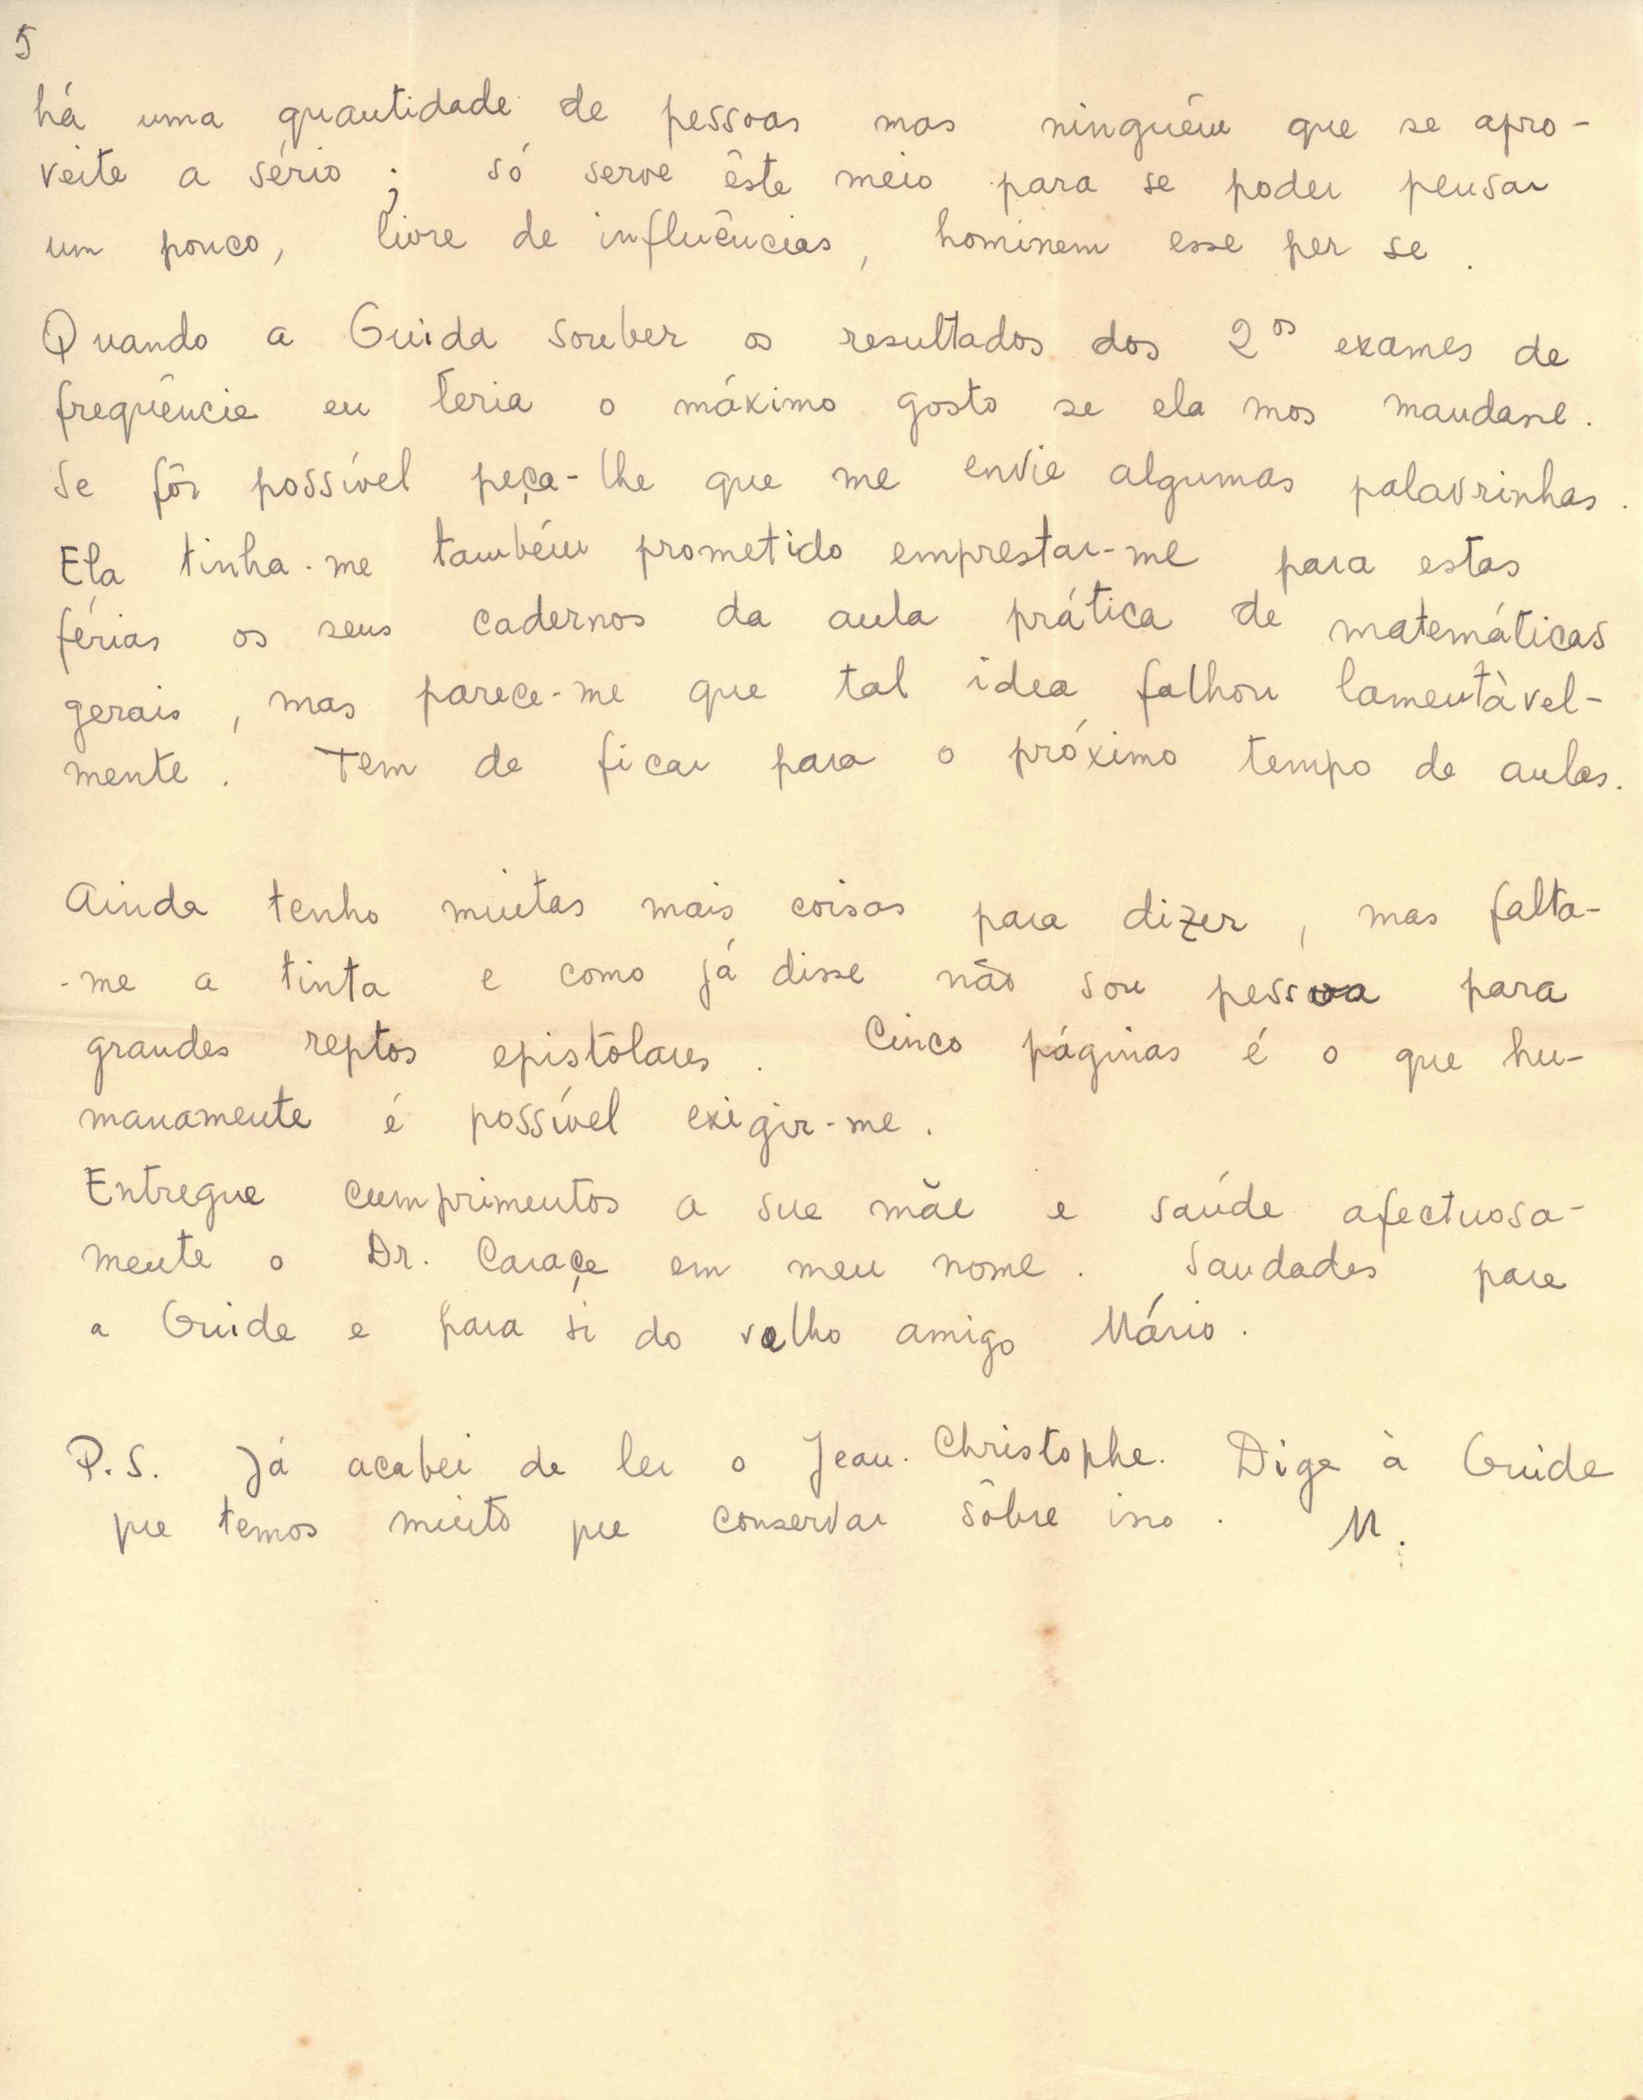 5
há uma quantidade de pessoas mas ninguém que se apro-
veite a sério ; só serve êste meio para se poder pensar
um pouco, livre de influências, hominem esse per se.
Quando a Guida souber os resultados dos 2os exames de
freqüência eu teria o máximo gosto se ela mos mandasse.
Se fôr possível peça-lhe que me envie algumas palavrinhas.
Ela tinha-me também prometido emprestar-me para estas
férias os seus cadernos da aula prática de matemáticas
gerais, mas parece-me que tal idea falhou lamentàvel-
mente. Tem de ficar para o próximo tempo de aulas.
Ainda tenho muitas mais coisas para dizer, mas falta-
-me a tinta e como já disse não sou pessoa para
grandes reptos epistolares. Cinco páginas é o que hu-
manamente é possível exigir-me.
Entregue cumprimentos a sua mãe e saúde afectuosa-
mente o Dr. Caraça em meu nome. Saudades para
a Guida e para si do velho amigo Mário.
P.S. Já acabei de ler o Jean-Christophe. Diga à Guida
que temos muito que conservar sôbre isso. M.